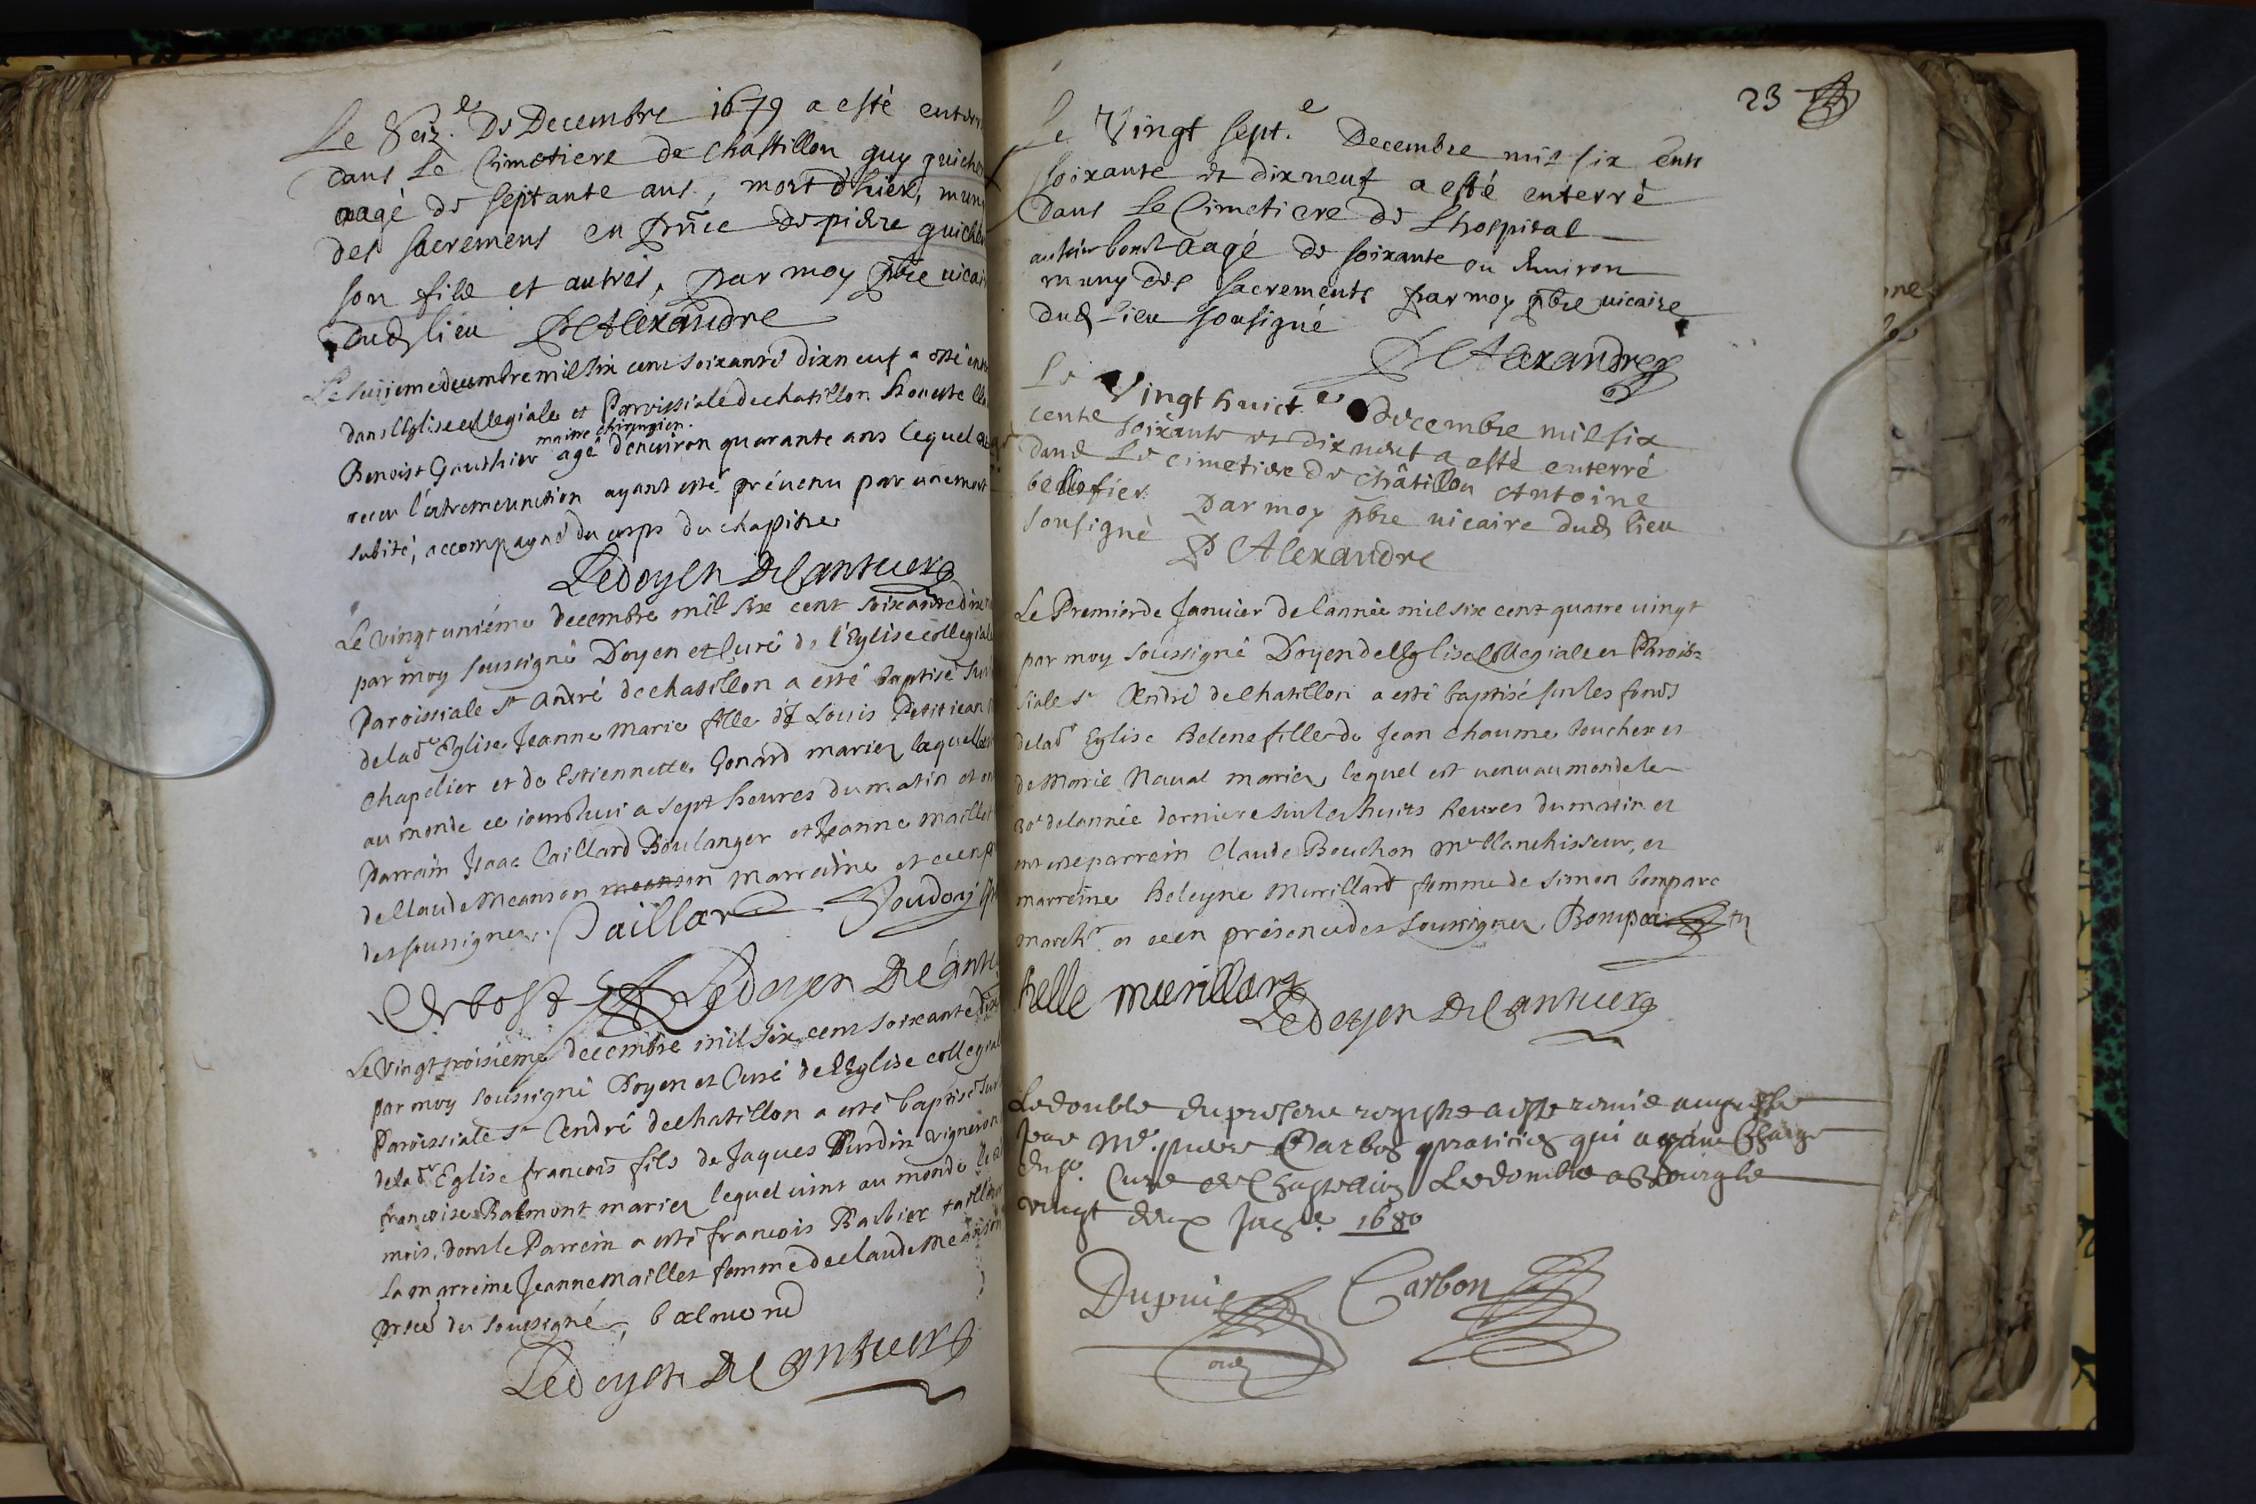 Le Seiz.e De Decembre 1679 a esté enterr
dans Le Cimetiere de chastillon guy guicher
aagé de septante ans, mort d'hier, muni
des sacremens en pnce de pierre guicher
son fils et autres, par moy pbre uicaire
dud lieu P Alexandre
Le seiziéme decembre mil six cent soixante dixneuf a esté ente
dans l'Eglise collegiale et Parroissiale de chatillon honeste
maitre chirurgien.
Benoist Gauthier agé d'environ quarante ans lequel
receu l'extremeunction ayant esté prévenu par une mort
subite, accompagné du corps du chapitre
Ledoyen De Cantuerg
Le vingt uniéme decembre mil six cent soixante dix
par moy soussigné Doyen et Curé de l'Eglise collegiale
Paroissiale St André de chatillon a esté baptisé sur
de lad.e Eglise Jeanne Marie fille de Louis Petitjean
chapelier et de Estiennette Gonard mariez laquelle
au monde ce iourdhui a sept heures du matin et
Parrain Isaac Caillard Boulanger et Jeanne maillet
de Claude Meanson marraine et ce en p
des soussignez. Caillard
Ledoyen De Cantu
Le vingt troisieme decembre mil six cent soixante dix
par moy soussigné Doyen et Curé de l'Eglise collegiale
Paroissiale St André de chatillon a esté baptisé sur
de lad.e Eglise francois fils de Jaques Burdin vigneron
francoise Balmont mariez lequel vint au monde le
mois, dont le Parrein a esté francois Barbier
la marreine Jeanne Maillet femme de claude Meanson
du soussigné, balmond
Ledoyen De Cantuerg
23
Le Vingt sept.e Decembre mil six cents
soixante et dixneuf a esté enterré
dans Le Cimetiere de Lhospital
aagé de soixante ou Enuiron
muny des sacrements par moy pbre uicaire
dud lieu sousigné
P Alexandre
Le Vingt huict.e Decembre mil six
cents soixante et dixneuf a esté enterré
dans Le cimetiere de châtillon Antoine
par moy pbre uicaire dud lieu
sousigné P Alexandre
Le Premier de Janvier de l'année mil six cent quatre vingt
par moy soussigné Doyen de l'Eglise Collegiale et Parois-
siale St André de chatillon a esté baptisé sur les fonds
de lad.e Eglise Helene fille de Jean chaume boucher et
de Marie Naual mariez lequel est venu au monde le
30e de l'année derniere sur les huits heures du matin et
parrein Claude Bouchon Me blanchisseur, et
marreine Heleyne Murillard femme de simon bompare
march.t et ce en présence des soussignez. Bompar
helle murillard
Ledoyen De Cantuerg
Le double du present registre a esté remis
par Me. pierre Carbon praticien qui a
du Sr. Curé de Chastillon Le double a Bourg le
vingt deux Jan.er 1680
Dupuis Carbon